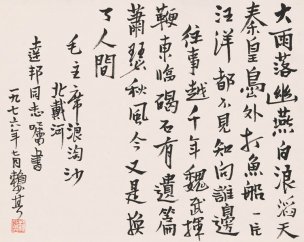 大雨落幽燕白浪滔天
秦皇島外打魚船一片
汪洋都不見知向誰邊
往事越千年魏武揮
鞭東臨碣石有遺篇
蕭瑟秋風今又是換
了人間
毛主席浪淘沙
北戴河
達邦同志囑書
一九七六年七月